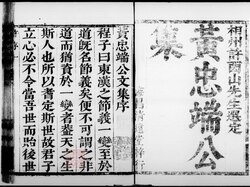 相州許酉山先生選定
黃忠端公
集
黃忠端公文集序
程子曰東漢之節義一變至於
道旣名節義矣便不可謂之非
道而猶資於一變者葢天之生
斯人也定斯世故君子
立心必不令當吾世而貽後世